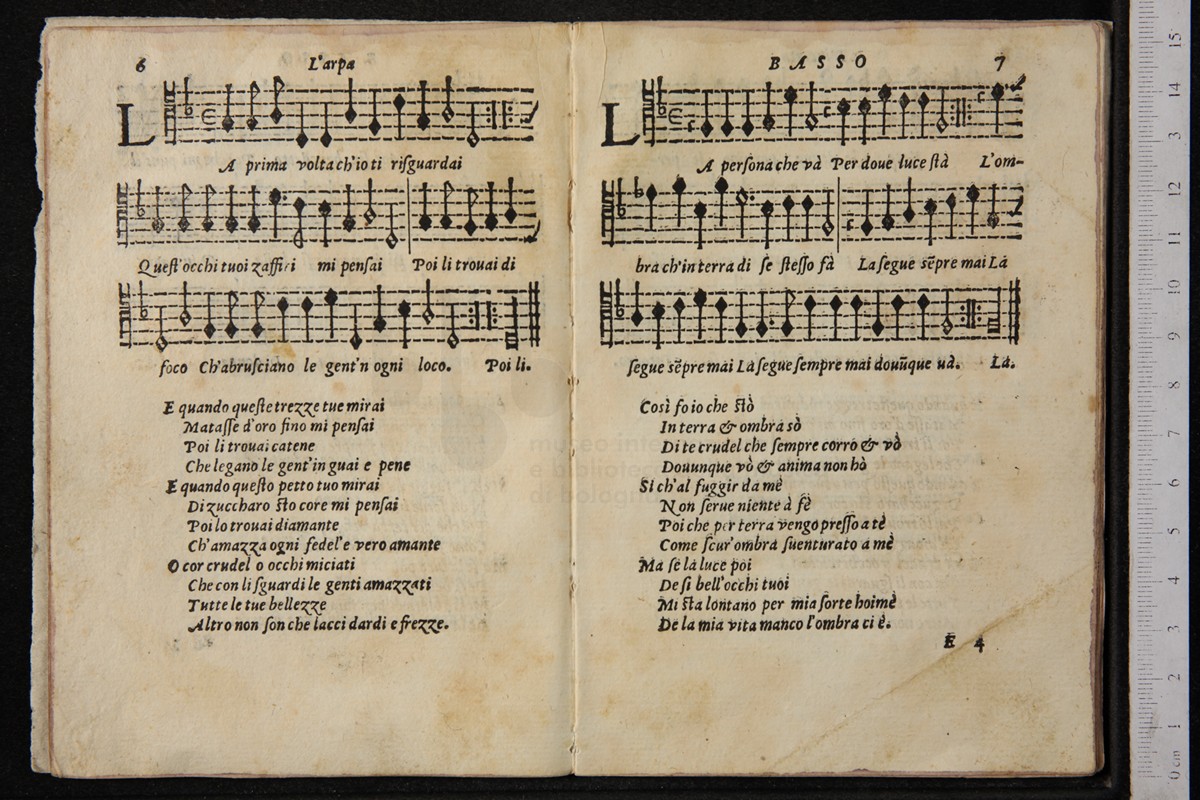 6 L'arpa
L
A prima volta ch'io ti riſguardai
Queſt'occhi tuoi zaffiri mi penſai Poi li trouai di
foco Ch'abruſciano le gent'n ogni loco. Poi li.
E quando queſte trezze tue mirai
Mataſſe d'oro fino mi penſai
Poi li trouai catene
Che legano le gent'in guai e pene
E quando queſto petto tuo mirai
Di zuccharo ſto core mi penſai
Poi lo trouai diamante
Ch'amazza ogni fedel'e vero amante
O cor crudel o occhi miciati
Che con li ſguardi le genti amazzati
Tutte le tue bellezze
Altro non ſon che lacci dardi e frezze.
BASSO 7
L
A perſona che và Per doue luce ſtà L'om-
bra ch'in terra di ſe ſteſſo fà La ſegue sẽpre mai La
ſegue sẽpre mai La ſegue ſempre mai douũque uà. La.
Così fo io che ſtò
In terra & ombra sò
Di te crudel che ſempre corro & vò
Douunque vò & anima non hò
Si ch'al fuggir da mè
Non ſerue niente à fè
Poi che per terra vengo preſſo a tè
Come ſcur'ombra ſuenturato a mè
Ma ſe la luce poi
De ſi bell'occhi tuoi
Mi ſta lontano per mia ſorte hoimè
De la mia vita manco l'ombra ci è.
E 4
museo inte
e biblioteca
di bologna
0 cm 1 2 3 4 5 6 7 8 9 10 11 12 13 14 15